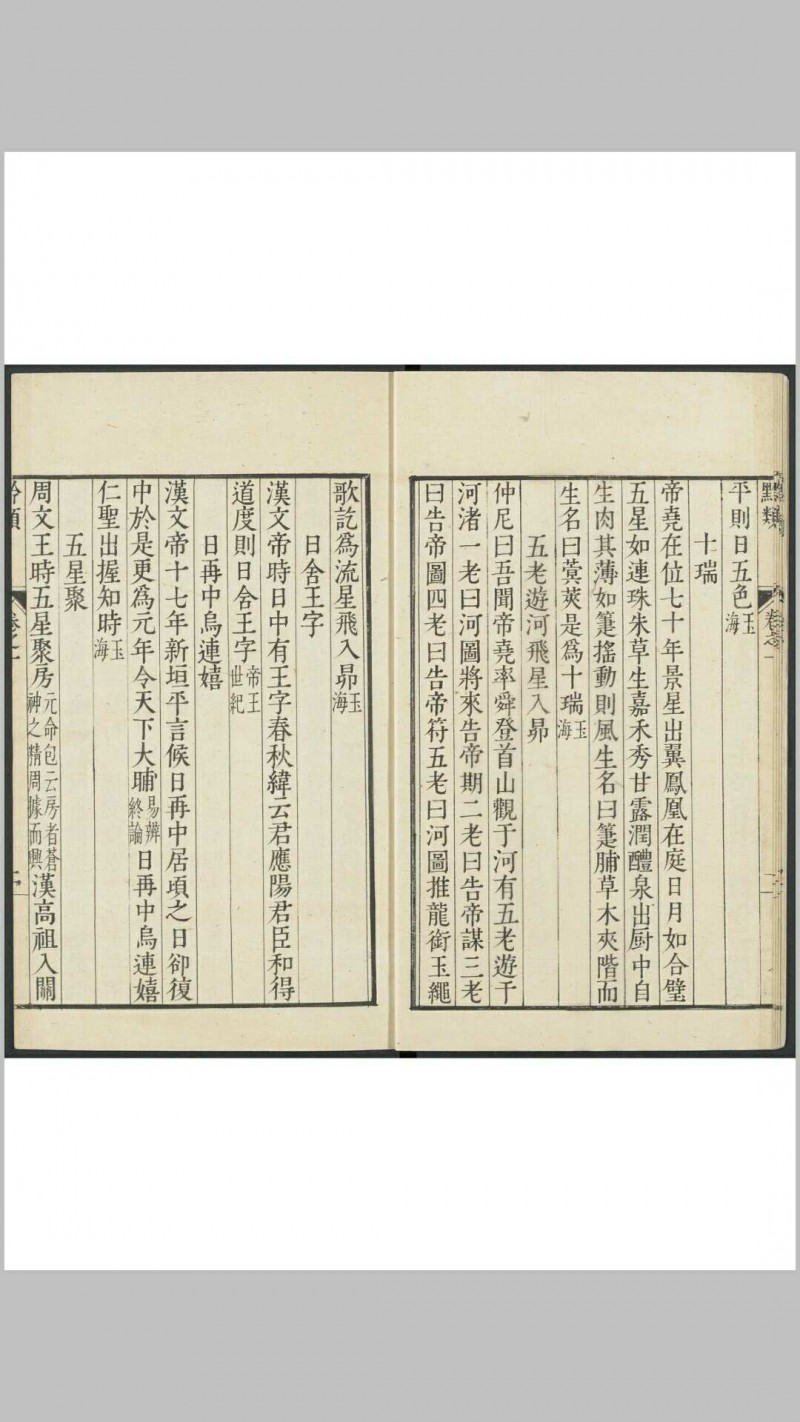 類
卷之一
平則日五色玉海
十瑞
帝堯在位七十年景星出翼鳳凰在庭日月如合璧
五星如連珠朱草生嘉禾秀甘露潤醴泉出厨中自
生肉其薄如箑搖動則風生名曰箑脯草木夾階而
生名曰蓂莢是爲十瑞玉海
五老遊河飛星入昴
仲尼曰吾聞帝堯率舜登首山觀于河有五老遊于
河渚一老曰河圖將來告帝期二老曰告帝謀三老
曰告帝圖四老曰告帝符五老曰河圖推龍銜玉繩
歌訖爲流星飛入昴玉海
日舍王字
漢文帝時日中有王字春秋緯云君應陽君臣和得
道度則日舍王字帝王世紀
日再中烏連嬉
漢文帝十七年新垣平言候日再中居頃之日卻復
中於是更爲元年令天下大酺易辨終論日再中烏連嬉
仁聖出握知時玉海
五星聚
周文王時五星聚房元命包云房者蒼神之精周據而興漢高祖入關